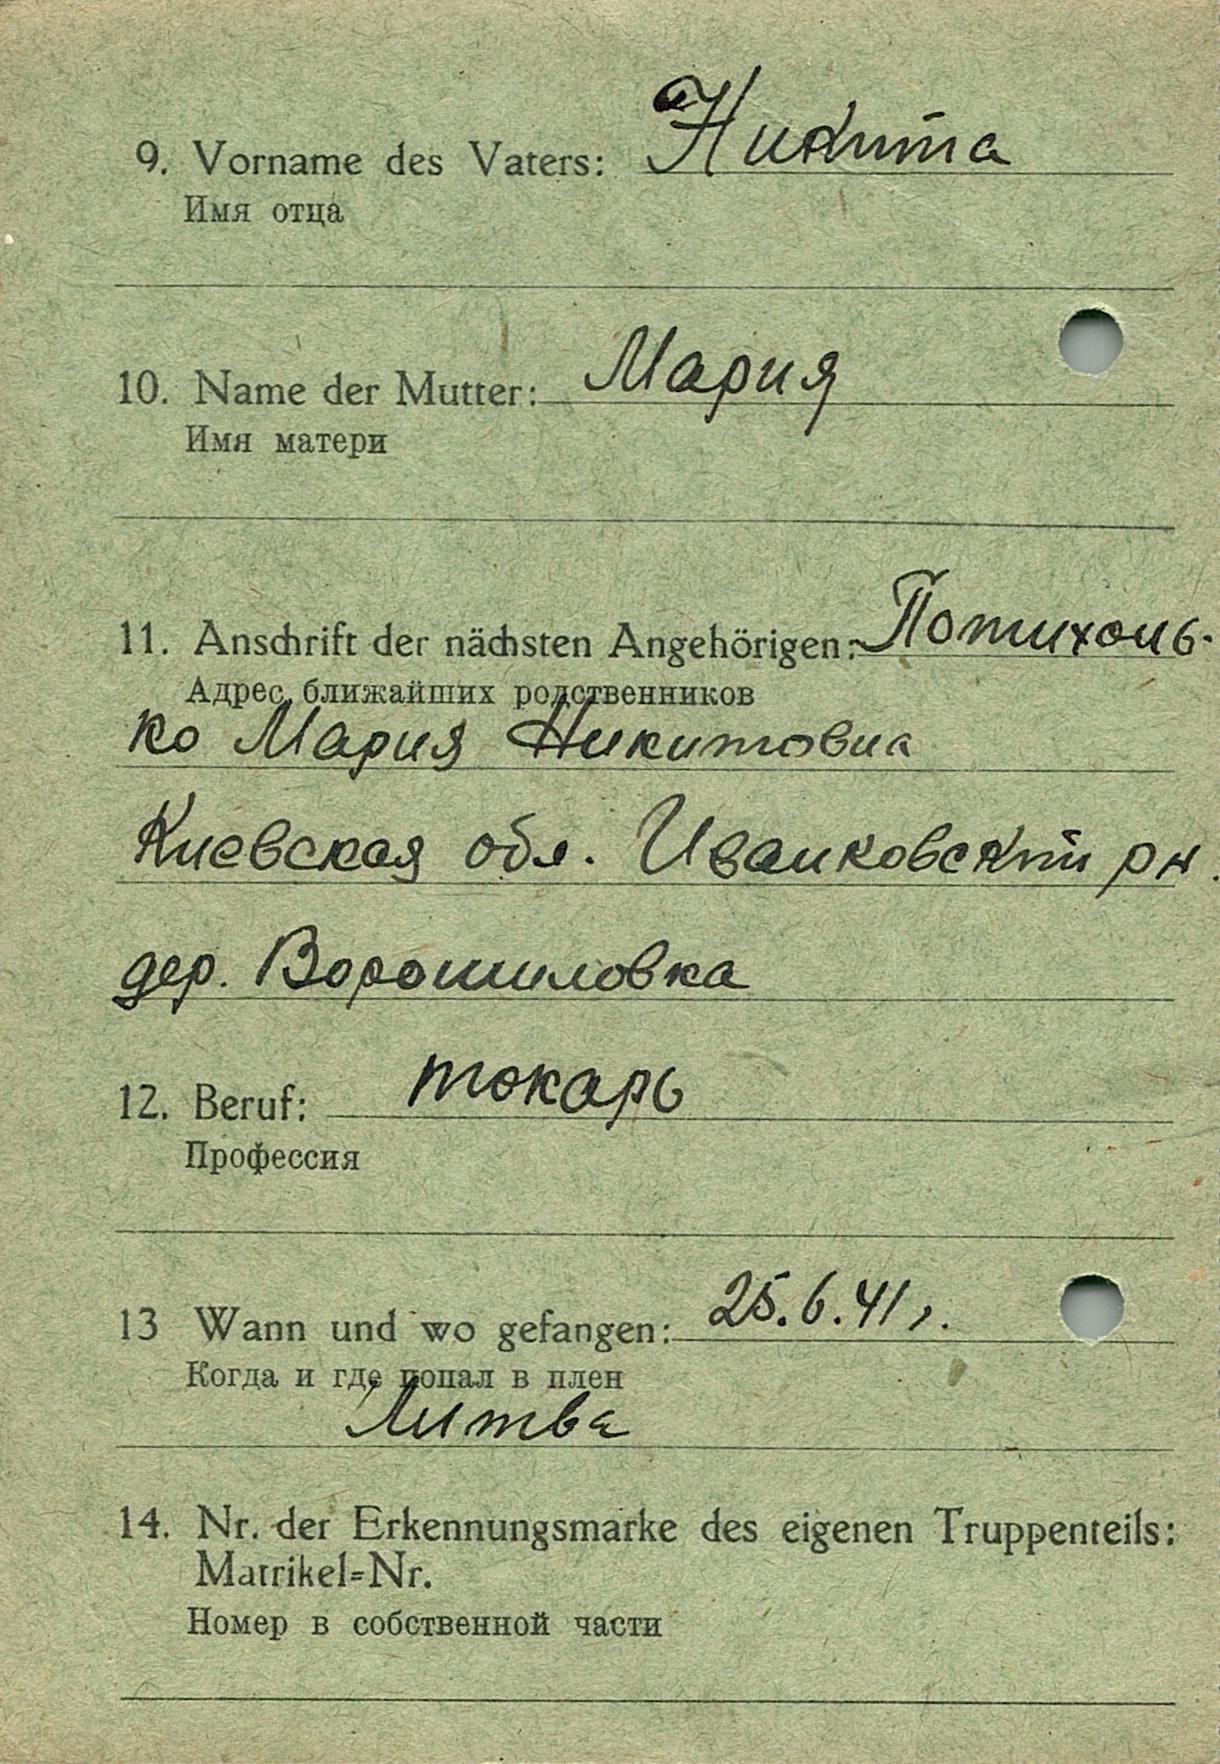 9. Vorname des Vaters: Никита
Имя отца
10. Name der Mutter: Мария
Имя матери
11. Anschrift der nächsten Angehörigen: Потихонь-
Адрес ближайших родственников
ко Мария Никитовна
Киевская обл. Иванковский рн.
дер. Ворошиловка
12. Beruf: токарь
Профессия
13 Wann und wo gefangen: 25.6.41 г.
Когда и где попал в плен
Литва
14. Nr. der Erkennungsmarke des eigenen Truppenteils:
Matrikel=Nr.
Номер в собственной части